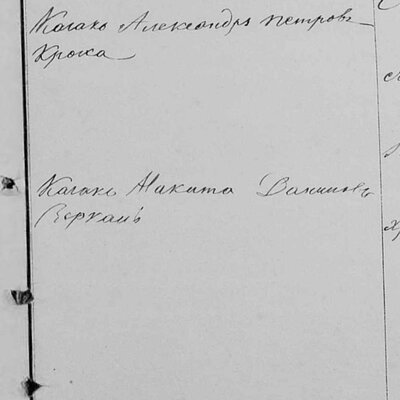 Козакъ Александръ Петровъ
Крока
Козакъ Никита Даниловъ